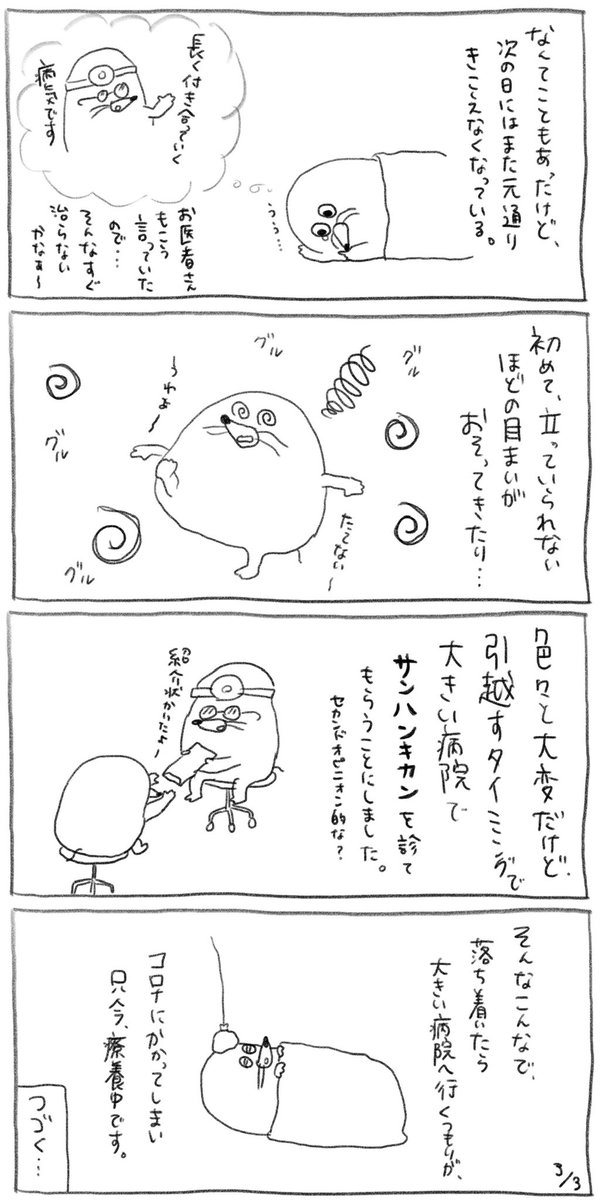 なんてこともあったけど、
次の日にはまた元通り
きこえなくなっている。
うぅ…
長く付き合っていく
病気です
お医者さん
もこう
言っていた
ので…
そんなすぐ
治らない
かなぁ〜
初めて、立っていられない
ほどの目まいが
おそってきたり…
グル
グル
グル
グル
うわよ〜
たてない〜
色々と大変だけど、
引越すタイミングで
大きい病院で
サンハンキカンを診て
もらうことにしました。
セカンドオピニオン的な？
紹介状かいたよ〜
そんなこんなで、
落ち着いたら
大きい病院へ行くつもりが、
コロナにかかってしまい
只今、療養中です。
つづく…
3/3